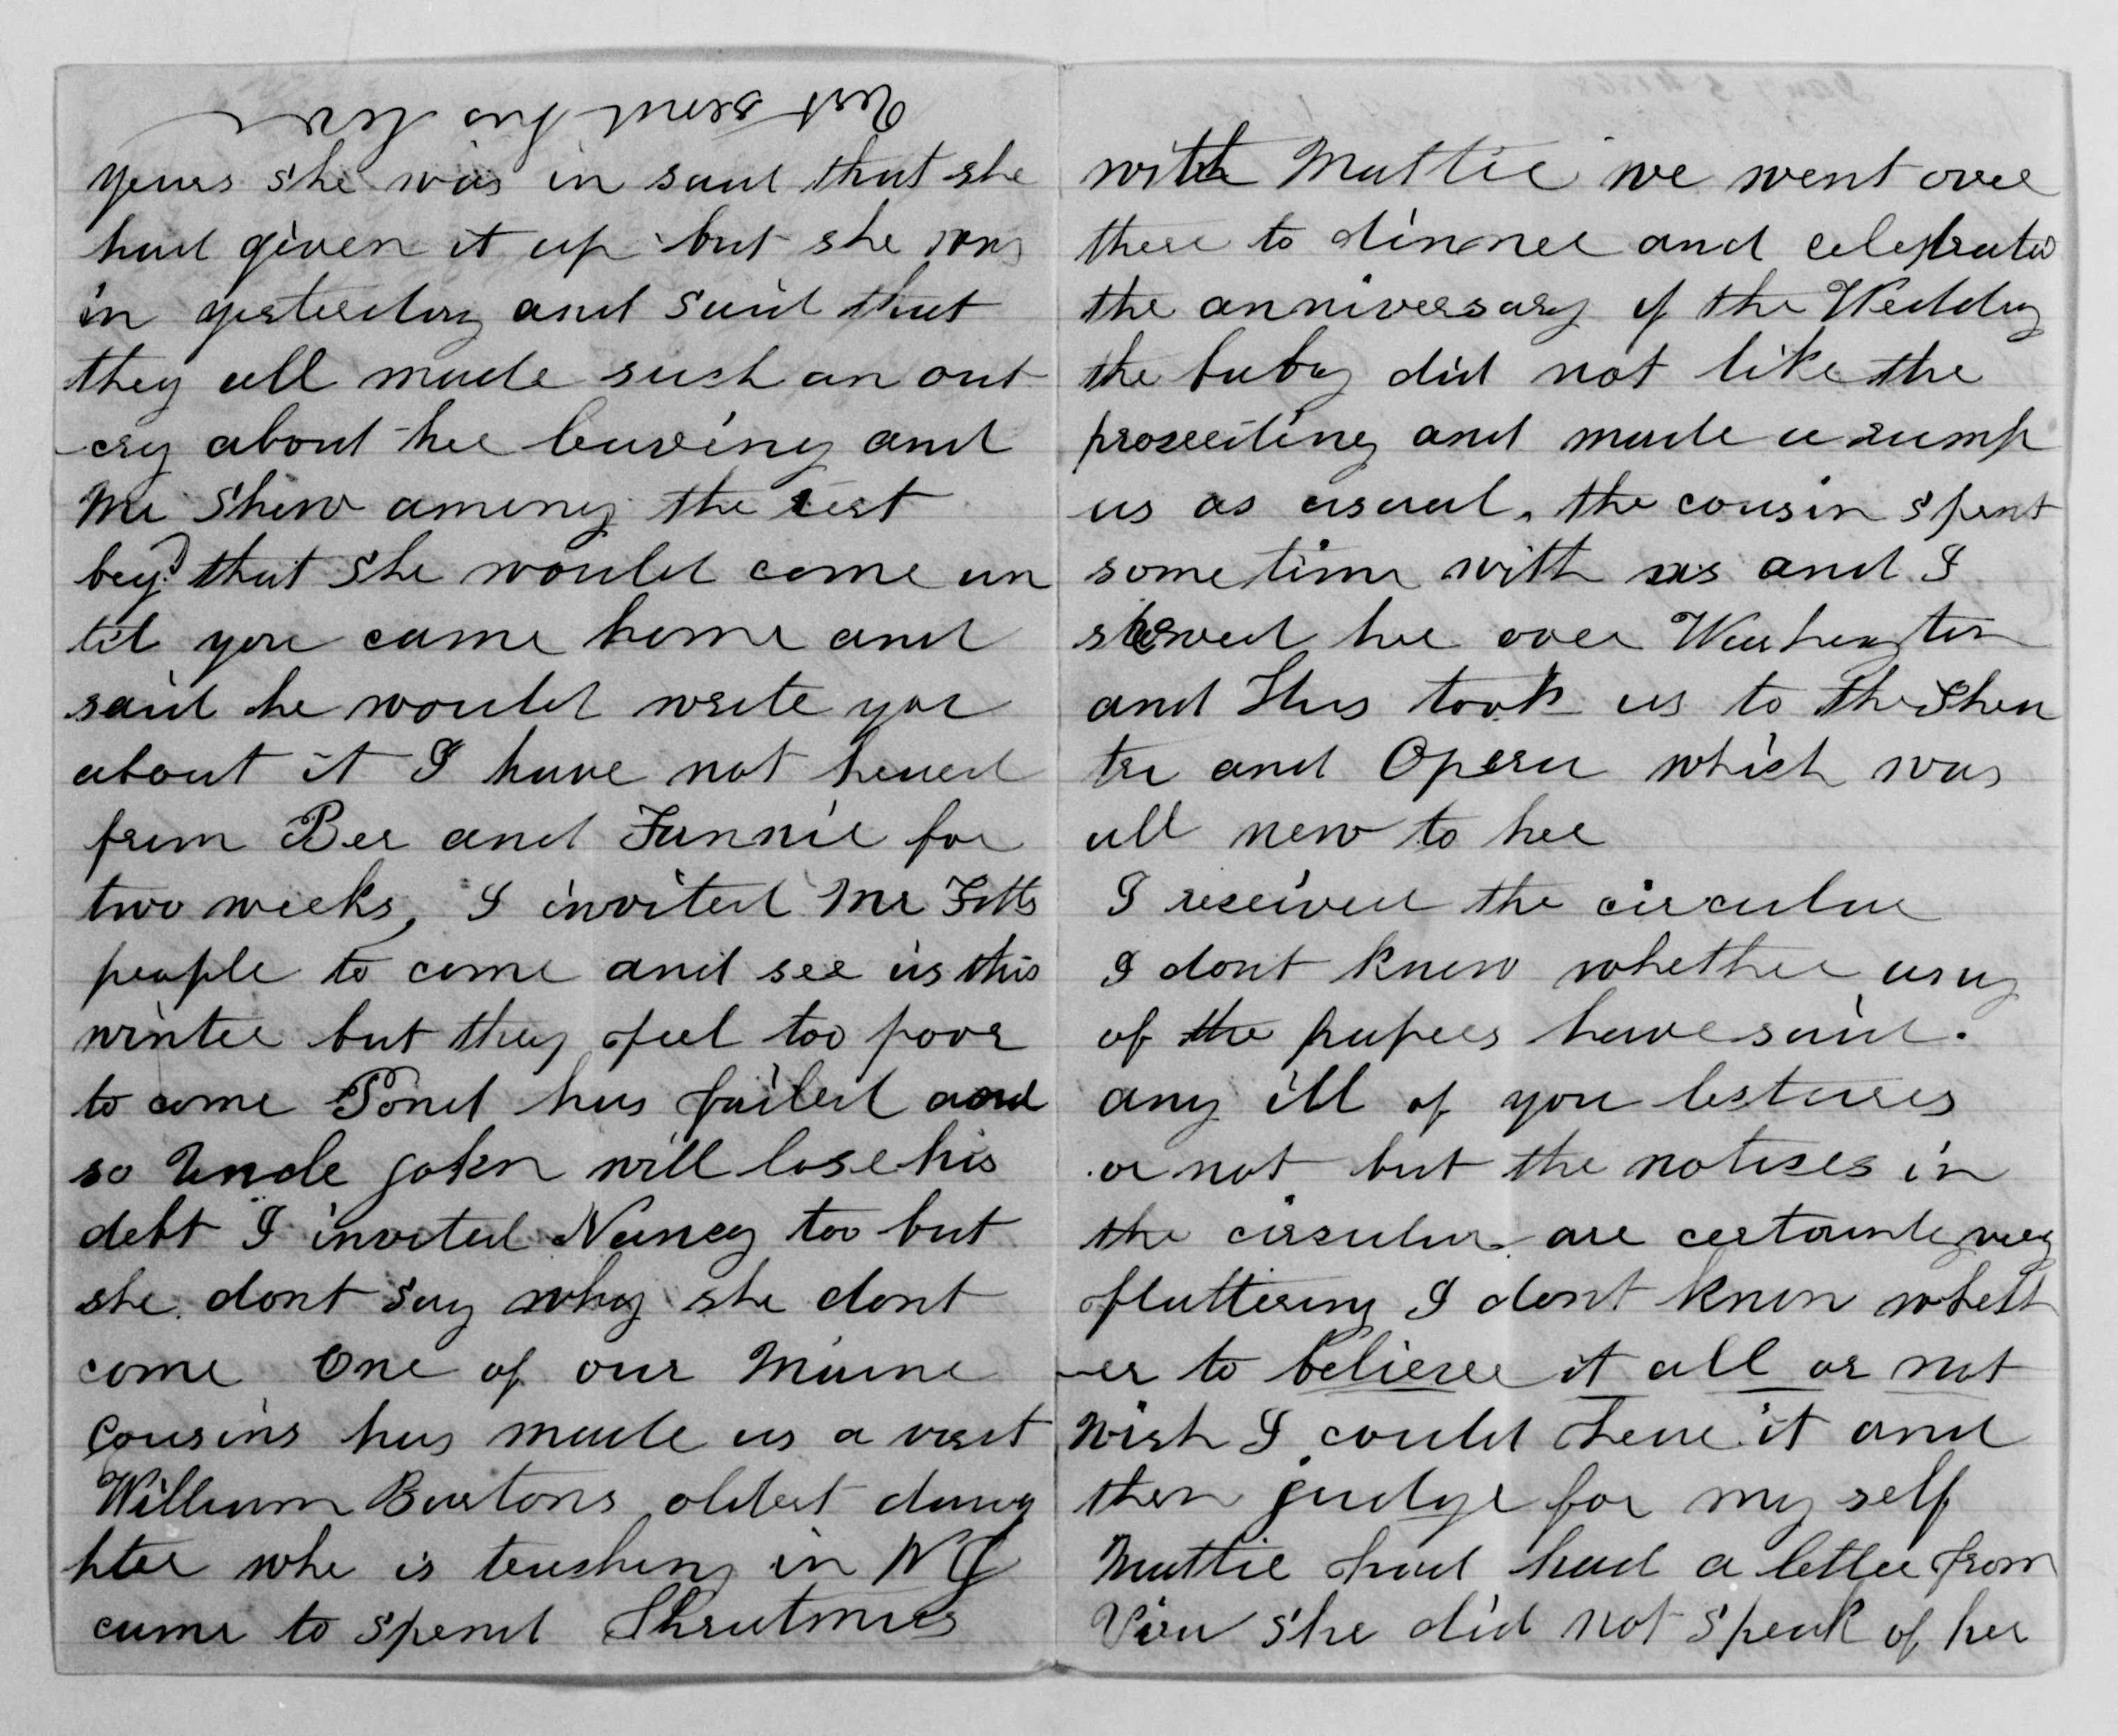 Gust send his love
years she was in said that she
had given it up but she was
in yesterday and said that
they all made such an out
-cry about her leaving and
Mr Shaw among the rest
beg'd that she would come un
til you came home and
said he would write you
about it I have not heard
from Bee and Fannie for
two weeks, I invited Mr Fitts
people to come and see us this
winter but they feel too poor
to come Pond has failed and
so Uncle John will lose his
debt I invited Nancy too but
she dont say why she dont
come One of our Maine
Cousins has made us a visit
William Burtons oldest daug
hter who is teaching in N J
came to spend Christmas
with Mattie we went over
there to dinner and celebrated
the anniversary of the Wedding
the baby did not like the
proceeding and made a rump
us as usual, the cousin spent
some time with us and I
showed her over Washington
and Gus took us to The Thea
tre and Opera which was
all new to her
I received the circular
I dont know whether any
of the papers have said
any ill of you lectures
or not but the notices in
the circular are certainly very
flattering I dont know wheth
-er to believe it all or not
Wish I could hear it and
then judge for my self
Mattie had had a letter from
Vira she did not speak of her